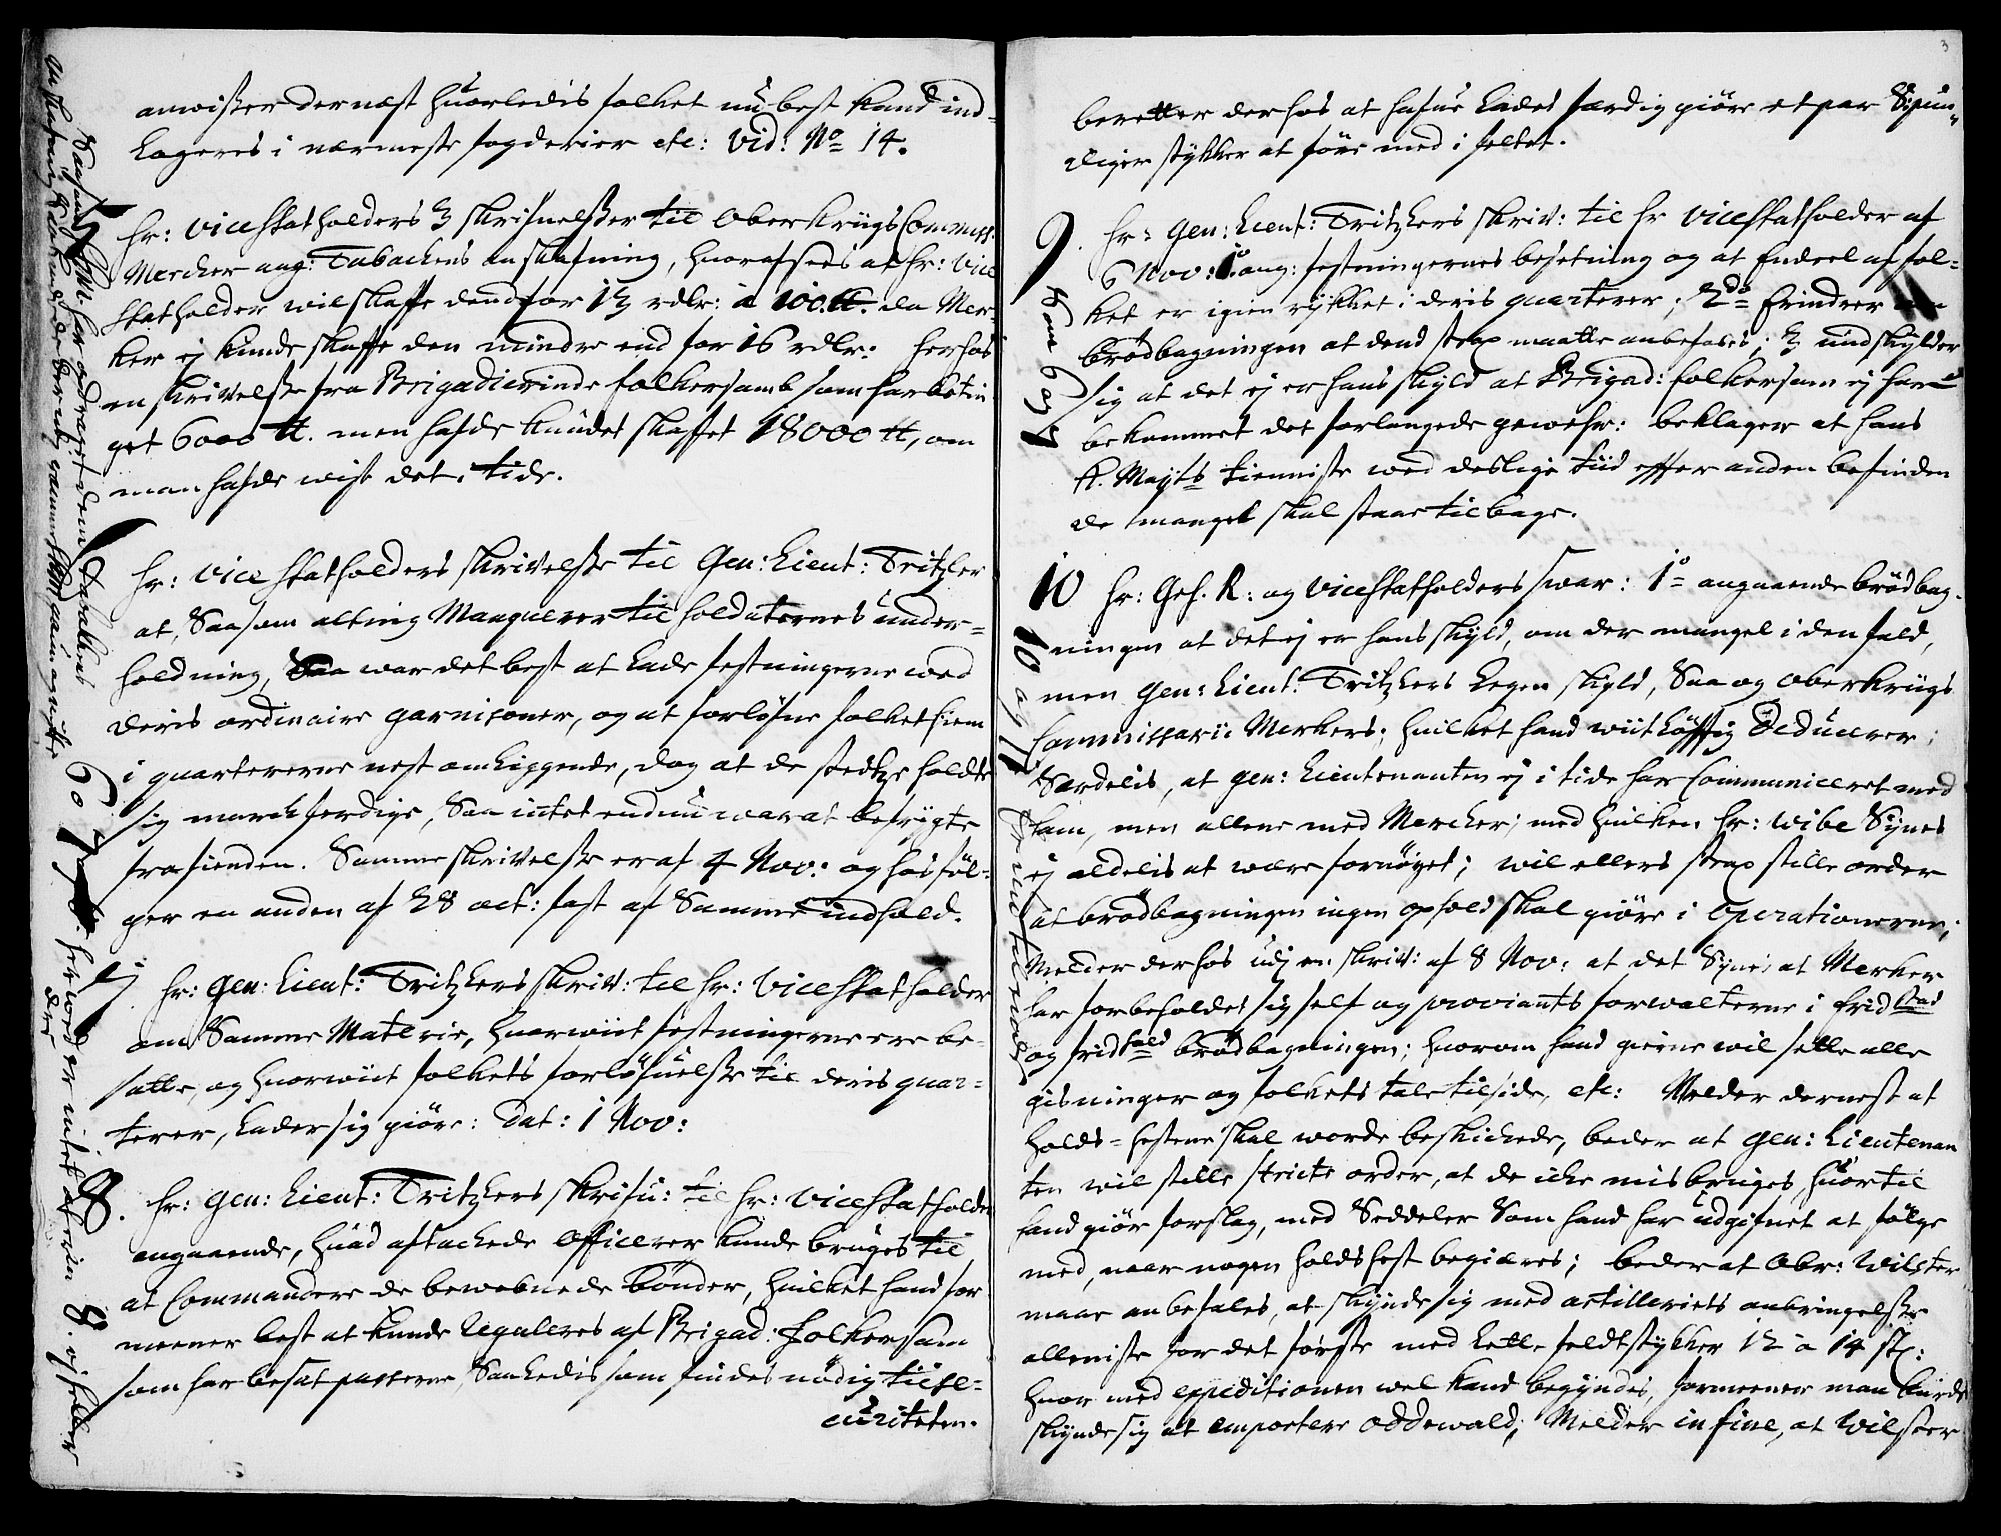 anwißer dernæst huorledis folket nu best kand ind=
lageres i nærmeste fogderier etc: vid: No 14.
5. Hr: viceStatholders 3 skrifuelser til OberKriigsCommiss:
Mercker ang: Tabackens anskafning, huoraf sees at Hr: Vice
Statholder wil skaffe dend for 13 rdlr: à 100. ℔. da Mer=
ker ej kunde skaffe den mindre end for 16 rdlr: herhos
en skrivelse fra Brigadierinde folckersamb som har betin
get 6000 ℔. men hafde kundet skaffet 18000 ℔, om
man hafde wist det i tide.
Hr: Vice Statholders skrivelse til Gen: Lieut: Tritzler
at, Saasom alting Manquerer til soldaternes under=
holdning, Saa war det best at lade festningerne wed
deris ordinaire garnisoner, og at forløfue folket hiem
i quartererne nest omliggende, dog at de stedtze holdte
sig marchferdige, Saa intet endnu war at befrygte
fra fienden. Samme skrivelse er af 4 Nov: og hos føl=
ger en anden af 28 oct: fast af Samme indhold.
7 Hr: Gen: Lieut: Tritzlers skriv: til Hr: ViceStatholder
om Samme Materie, huorwiit festningerne ere be=
satte, og huorwiit folkets forløfuelse til deris quar=
terer, lader sig giøre: Dat: 1 Nov:
8. Hr: Gen: Lieut: Tritzlers skrifu: til Hr: viceStatholder
angaaende, huad aftackede Officerer kunde bruges til
at Commandere de bewebnede bønder, huilket hand for
meener best at kunde reguleres af Brigad: folckersam
som har besat passerne, Saaledis som findes nødig til Se=
curiteten.
Saasom Mhr: har afdraget dem Tabakkens
anskafning
6 og 7 herwed er intet at erin
dre
8.
3
beretter derhos at hafue ladet færdig giøre et par Sexpun=
diger stykker at føre med i feltet.
9. Hr: Gen: Lieut: Tritzlers skriv: til Hr viceStatholder af
6 Nov: 1o ang: festningernes besetning og at Endeel af fol=
ket er igien rykket i deris quarterer; 2do Erindrer om
brødbagningen at dend strax maatte anbefales; 3 undskylder
sig at det ej er hans skyld at Brigad: folckersam ej har
bekommet det forlangede gewehr: beklager at hans
K. Mayts tienniste wed deslige tiid effter anden befinden
de mangel skal staae tilbage.
10 Hr: Geh. R: og viceStatholders swar: 1o angaaende brødbag=
ningen at det ej er hans skyld, om der mangel i den fald,
men Gen: Lieut: Tritzlers egen skyld, Saa og OberKriigs
Commissarii Merkers; huilket hand wiitløfftig deducerer;
Særdelis, at Gen: Lieutenanten ej i tide har Communiceret med
ham, men allene med Mercker; med huilken Hr: Wibe Synes
ej aldelis at wære fornøyet; wil ellers strax stille order
at brødbagningen ingen ophold skal giøre i Operationerne;
Melder derhos udj en skriv: af 8 Nov: at det Synes at Merker
har forbeholdet sig self og proviants forwalterne i Fridstad
og Fridhald brødbagningen; huorom hand gierne wil sette alle
gisninger og folkets tale tilside, etc: Melder dernest at
holds=hestene skal worde beskickede, beder at Gen: Lieutenan
ten wil stille stricte order, at de icke misbruges, huortil
hand giør forslag, med Seddeler Som hand har udgifuet at følge
med, naar nogen holdshest begiæres; beder at Obr: Wilster
maae anbefales, at skynde sig med artilleriets anbringelse
alleniste for det første med lette feldtstykker 12 a 14 st:
huor med expeditionen wel kand begyndes, formeener man burde
skynde sig at emportere Oddewald; Melder in fine, at Wilster
8 om 6 og 7
10 og 11